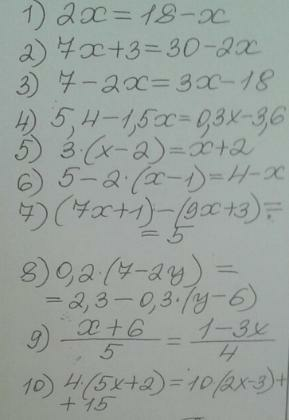 1) 2x = 18 - x
2) 7x + 3 = 30 - 2x
3) 7 - 2x = 3x - 18
4) 5,4 - 1,5x = 0,3x - 3,6
5) 3·(x - 2) = x + 2
6) 5 - 2·(x - 1) = 4 - x
7) (7x + 1) - (9x + 3) =
= 5
8) 0,2·(7 - 2y) =
= 2,3 - 0,3·(y - 6)
9) (x + 6)/5 = (1 - 3x)/4
10) 4·(5x + 2) = 10·(2x - 3) +
+ 15